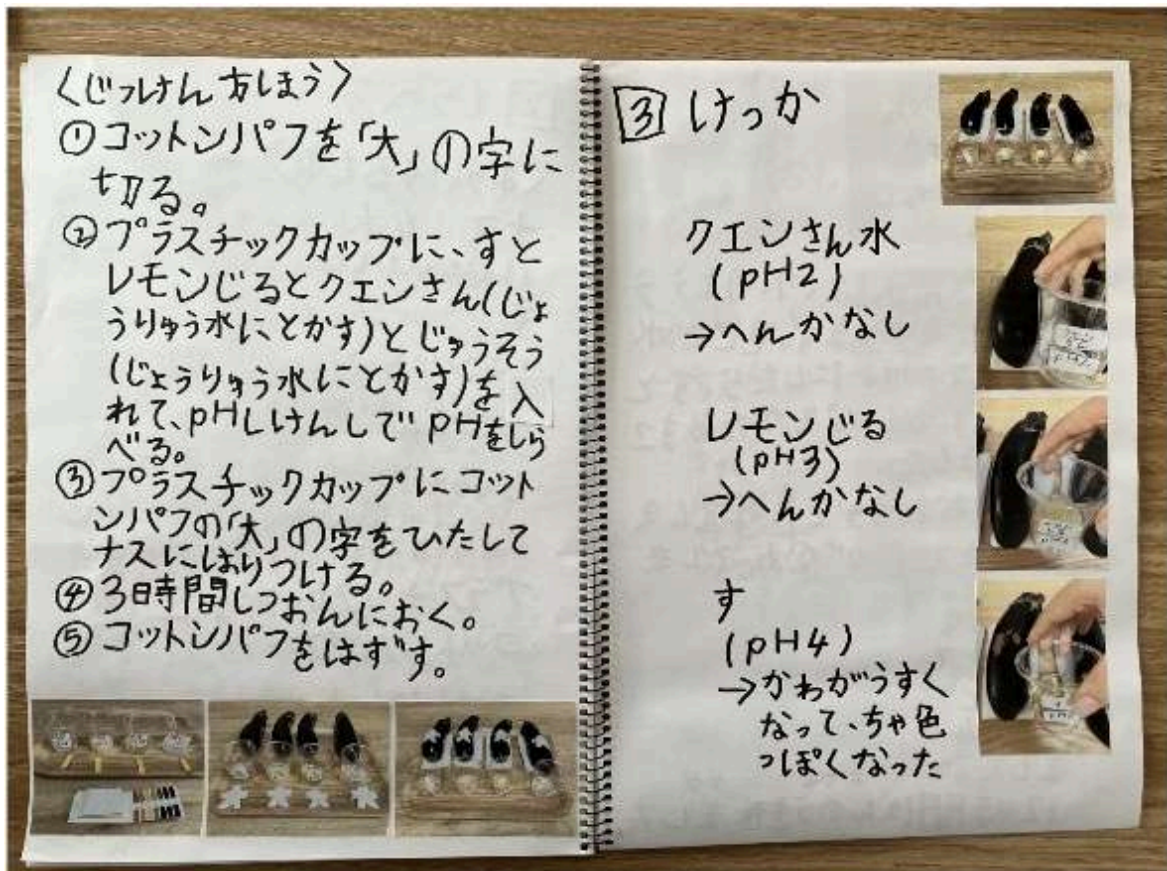 〈じっけん方ほう〉
①コットンパフを「大」の字に
切る。
②プラスチックカップに、すと
レモンじるとクエンさん(じょ
うりゅう水にとかす)とじゅうそう
(じょうりゅう水にとかす)を入
れて、pHしけんしでpHをしら
べる。
③プラスチックカップにコット
ンパフの「大」の字をひたして
ナスにはりつける。
④3時間しつおんにおく。
⑤コットンパフをはずす。
3 けっか
クエンさん水
(pH2)
→へんかなし
レモンじる
(pH3)
→へんかなし
す
(pH4)
→かわがうすく
なって、ちゃ色
っぽくなった